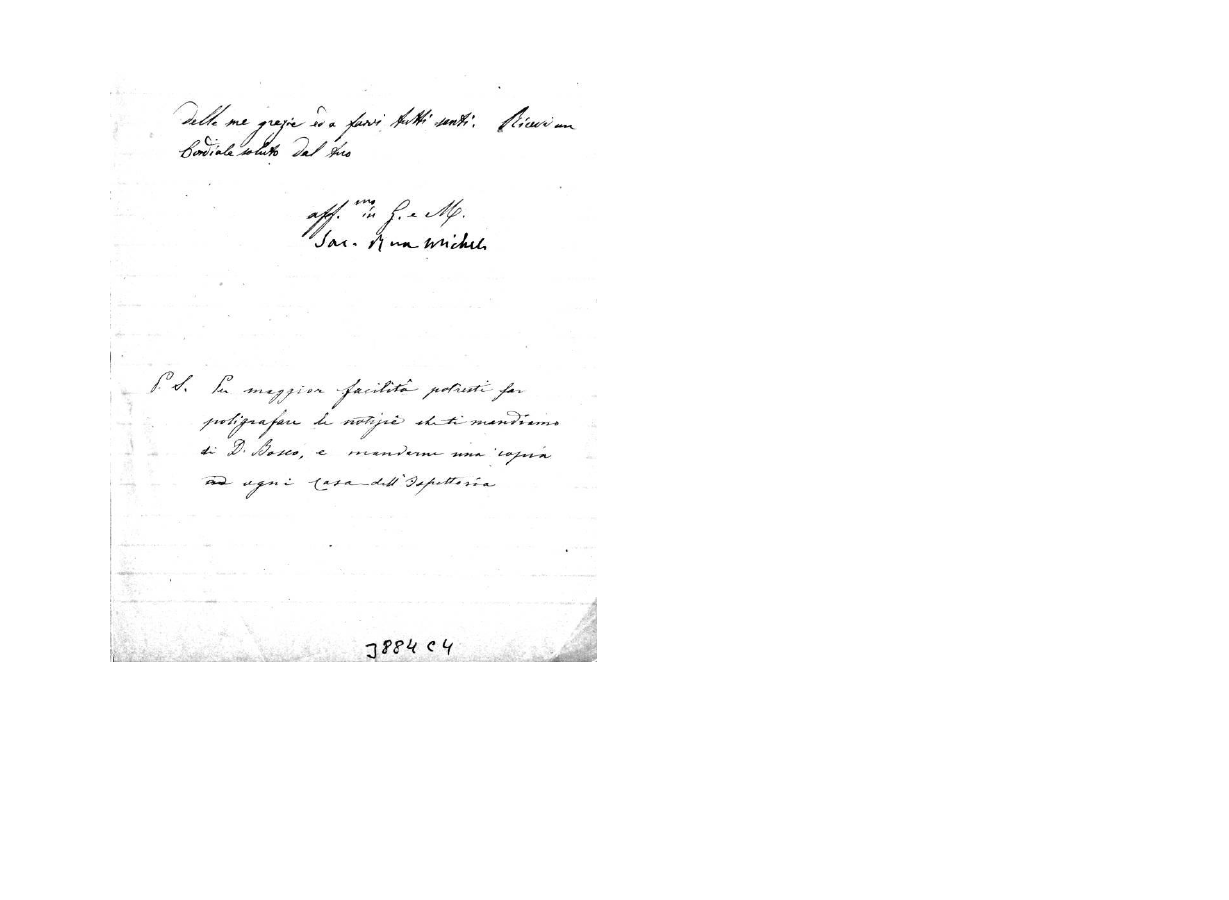 delle me grazie ed a farvi tutti santi. Ricevi un
Cordiale saluto dal tuo
aff.mo in G. e M.
Sac. Rua Michele
P. S. Per maggior facilità potresti far
poligrafare le notizie che ti mandiamo
di D. Bosco, e mandarne una copia
ad ogni Casa dell'Ispettoria
J884 C4